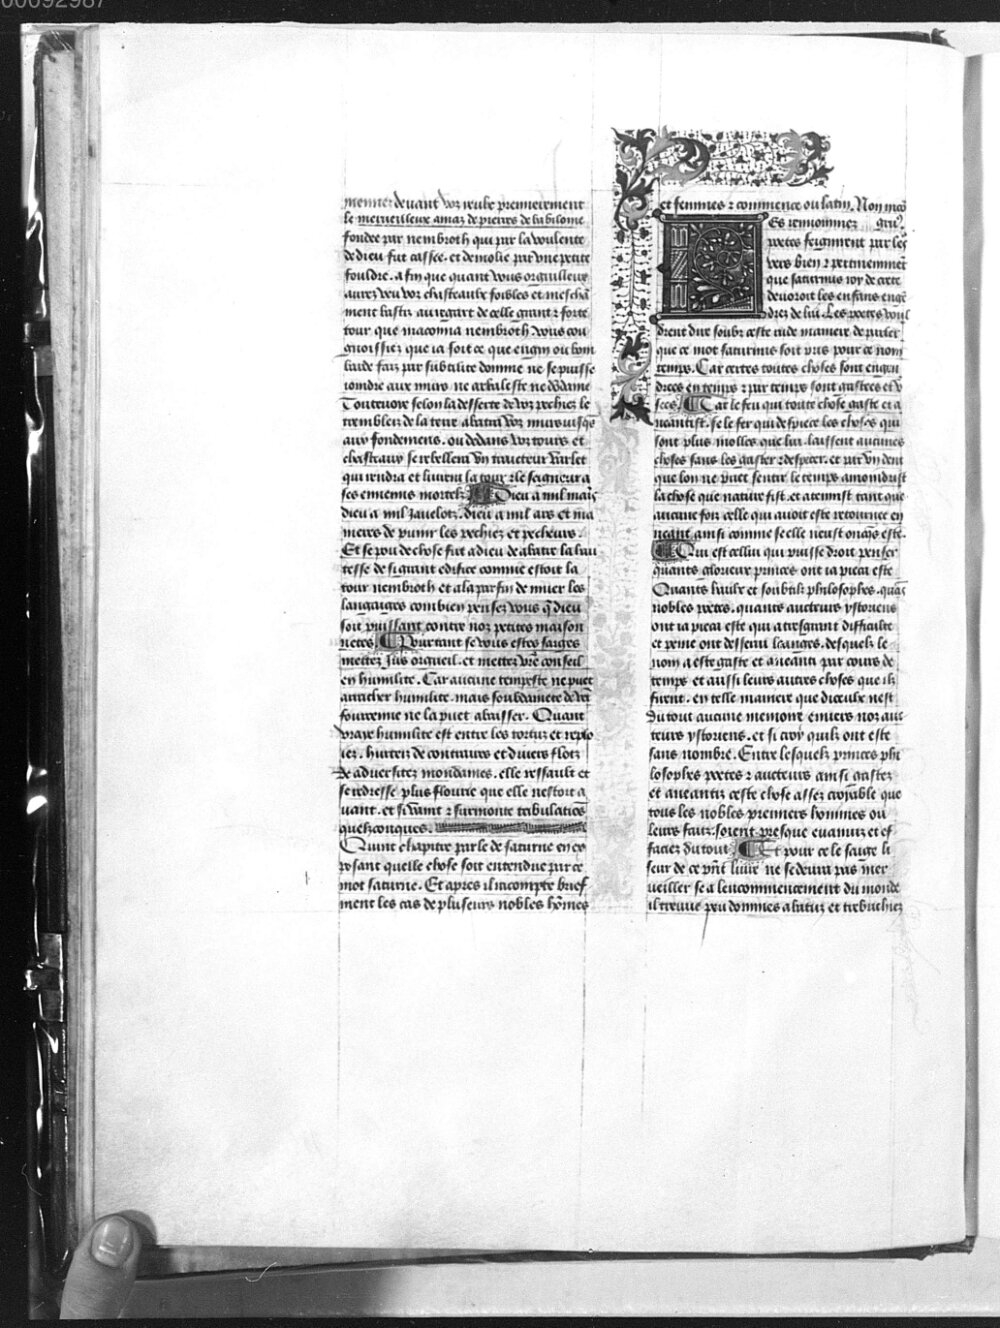 00092987
mennez devant voz yeulx premierement
le merveilleux amaz de pierres de babilonne
fondee par nembroth qui par la voulente
de dieu fut cassee. et demolie par une petite
fouldre. a fin que quant vous orguilleux
aurez veu voz chasteaulx foibles et mescha
ment bastiz au regart de celle grant ⁊ forte
tour que maconna nembroth vous con
gnoissiez que ia soit ce que engin ou bom
barde faiz par subtilite donme ne se puisse
ioindre aux murs ne arbaleste ne dōdame
Toutevoie selon la desserte de voz pechiez le
trembleis de la terre abatra voz murs iusqs
aux fondemens. ou dedans voz tours et
chasteaux se rebellera un traicteur varlet
qui rendra et livrera la tour ⁊ le seigneur a
ses ennemis mortelz Dieu a mil mais
dieu a mil iavelotz. dieu a mil ars et ma
nieres de punir les pechiez et pecheurs.
Et se pou de chose fut a dieu de abatre la hau
tesse de si grant edifice comme estoit la
tour nembroth et a la parfin de muer les
langaiges combien pensez vous q̄ dieu
soit puissant contre noz petites maison
netes. Pourtant se vous estes saiges
mettez jus orgueil. et mettez vr̄e conseil
en humilite. Car aucune tempeste ne puet
arracher humilite. mais soubdainete de
fourcenne ne la puet abaisser. Quant
vraye humilite est entre les tortuz et reploi
iez. hurteiz de contraires et divers flotz
de adversitez mondaines. elle ressault et
se redresse plus flourie que elle nestoit a
vant. et si vaint ⁊ surmonte tribulacions
quelzconques.
Quint chapitre parle de saturne en ex
posant quelle chose soit entendue par ce
mot saturne. Et apres il racompte brief
ment les cas de pluseurs nobles hōmes
et femmes ⁊ commence ou latin. Non meo
Es renommez
poetes feignirent par les
vers bien ⁊ pertinemmēt
que saturnus roy de crete
devoroit les enfans enge
drez de lui. Les poetes voul
drent dire soubz ceste rude maniere de parler
que ce mot saturnus soit pris pour ce nom
temps. Car certes toutes choses sont engen
drees en temps ⁊ par temps sont gastees et
sees. Car le feu qui toute chose gaste et a
neantist. se le fer qui despiece les choses qui
sont plus molles que lui. laissent aucunes
choses sans les gaster ⁊ despecer. et par un dent
que lon ne puet sentir le temps amoindrist
la chose que nature fist. et atennist tant que
aucune foiz celle qui avoit este retourne en
neant ainsi comme se elle neust oncqs este.
Qui est cellui qui puisse droit penser
quants glorieux princes ont ia pieca este
Quants haulx et soubtilz philosophes. quās
nobles poetes. quants aucteurs ystoriens
ont ia pieca este qui a tresgrant difficulte
et peine ont desservi leanges. desquelz le
nom a este gaste et aneanti par cours de
temps et aussi leurs autres choses que ilz
firent. en telle maniere que diceulx nest
du tout aucune memoire envers noz auc
teurs ystoriens. et si croy quilz ont este
sans nombre. Entre lesquelz princes phi
losophes poetes ⁊ aucteurs ainsi gastez
et aneantiz ceste chose assez croyable que
tous les nobles premiers hommes ou
leurs faitz. soient presque evanuiz et ef
faciez du tout Et pour ce le saige li
seur de ce pn̄t livre ne se devra pas mer
veiller se a lencommencement du monde
il treuve peu dommes abatuz et trebuchiez